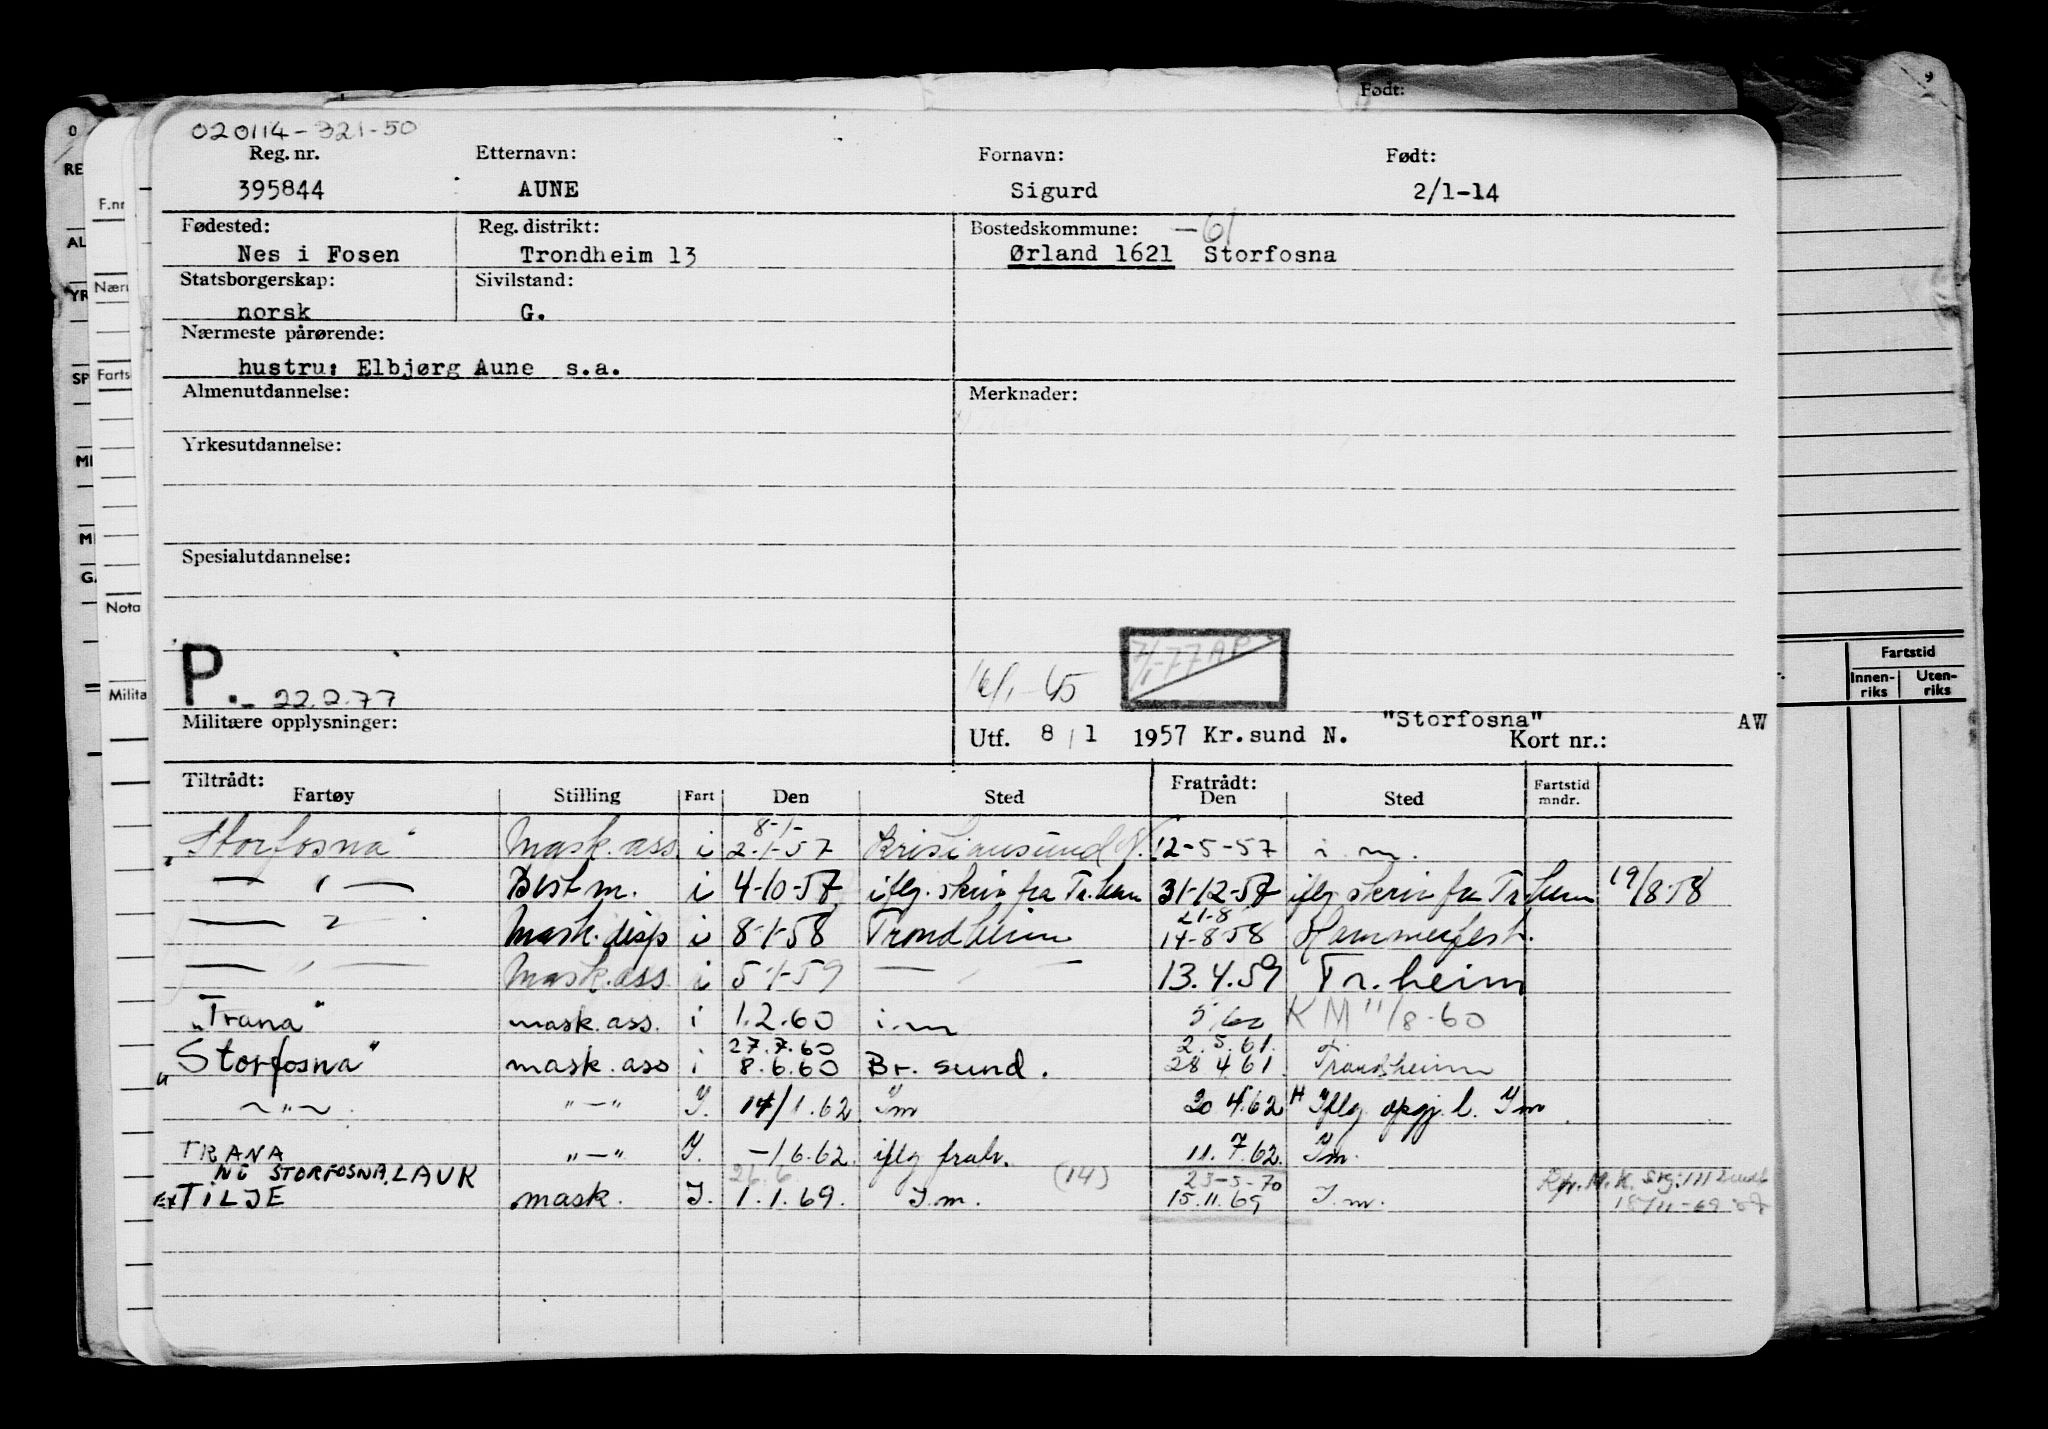 Født:
9
020114-321-50
Reg. nr. Etternavn: Fornavn: Født:
395844 AUNE Sigurd 2/1-14
Fødested: Reg. distrikt: Bostedskommune: -61
Nes i Fosen Trondheim 13 Ørland 1621 Storfosna
Statsborgerskap: Sivilstand:
norsk G.
Nærmeste pårørende:
hustru: Elbjørg Aune s.a.
Almenutdannelse: Merknader:
Yrkesutdannelse:
Spesialutdannelse:
7/1-77 AP
P.- 22.2.77
Militære opplysninger:
"Storfosna" AW
Utf. 8/1 1957 Kr.sund N. Kort nr.:
Tiltrådt: Fratrådt: Fartstid
Fartøy Stilling Fart Den Sted Den Sted mndr.
8-1-
"Storfosna" Mask. ass. i 2-1-57 Kristiansund N. 12-5-57 i.m.
— " — Best m. i 4-10-57 iflg. skriv fra Tr.heim 31-12-57 iflg skriv fra Tr.heim 19/8-58
21-8
— " — Mask. disp i 8-1-58 Trondheim 14-8-58 Hammerfest.
— " — Mask. ass. i 5-1-59 — " — 13.4.59 Tr.heim
"Trana" mask. ass. i 1.2.60 i.m 5/60 KM 11/8-60
27.7.60 2.5.61.
"Storfosna" mask. ass i 8.6.60 Br. sund. 28 4.61 Trondheim
~ " ~ "—" I. 14/1.62 Im 30 4.62 Iflg. oppgj. l. Im
TRANA "—" I. -/6.62. iflg fratr. 11.7.62. Im.
NÅ STORFOSNA, LAUK 26.6 (14) 23-5-70
EX TILJE mask. I. 1.1.69. I.m. 15.11.69 I.m.
15/11-69
RE
F.nr
Fartstid
Innen-riks Uten-riks
SP
Farts
Nota
Milita